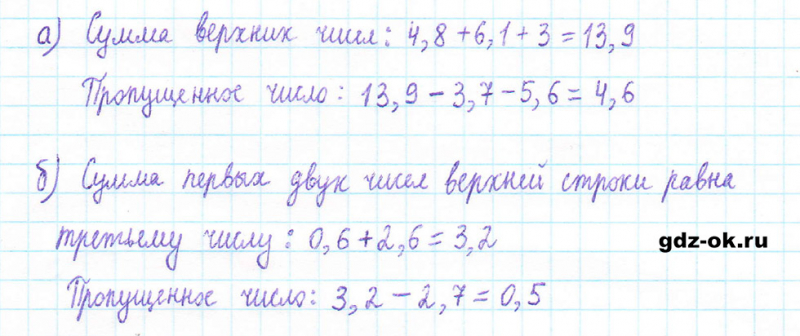 а) Сумма верхних чисел: 4,8+6,1+3=13,9
Пропущенное число: 13,9-3,7-5,6=4,6
б) Сумма первых двух чисел верхней строки равна
третьему числу: 0,6+2,6=3,2
gdz-ok.ru
Пропущенное число: 3,2-2,7=0,5